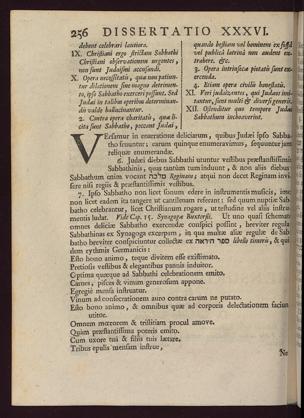 256 DISSERTATIO XXXVI.
debent celebrari lautiora.
IX. Christiani ergo strictam Sabbathi
Christiani observationem urgentes,
non sunt Judaismi accusandi.
X. Opera necessitatis, quæ non patiun-
tur dilationem sine magno detrimen-
to, ipso Sabbatho exerceri possunt, sed
Judæi in talibus operibus determinan-
dis valde hallucinantur.
2. Contra opera charitatis, quæ li-
cita sunt Sabbatho, peccant Judæi,
quando bestiam vel hominem ex fossa
vel publica latrina non audent ex-
trahere, &c.
3. Opera intrinsecæ pietatis sunt ex-
ercenda.
2. Etiam opera civilis honestatis.
XI. Vari judæizantes, qui Judæos imi-
tantur, sunt modis & diversi generis.
XII. Ostenditur quo tempore Judæi
Sabbathum inchoaverint.
VErsamur in enarratione deliciarum, quibus Judæi ipso Sabba-
tho fruuntur; earum quinque enumeravimus, sequuntur jam
reliquæ enumerandæ.
6. Judæi diebus Sabbathi utuntur vestibus præstantissimis
Sabbathinis, quas tantum tum induunt, & non aliis diebus
Sabbathum enim vocant מלכה Reginam; atqui non decet Reginam invi-
sere nisi regiis & præstantissimis vestibus.
7. Ipso Sabbatho non licet suum edere in instrumentis musicis, imo
non licet eadem ita tangere ut cantilenam referant: sed quum nuptiæ Sab-
batho celebrantur, licet Christianum rogare, ut testudine vel aliis instru-
mentis ludat. Vide Cap. 15. Synagogæ Buxtorfii. Ut uno quasi schemate
omnes deliciæ Sabbatho exercendæ conspici possint, breviter regulæ
Sabbathinas ex Synagoga excerpam, in qua multæ aliæ regulæ de Sab-
batho breviter conspiciuntur collectæ ex ספר היראה libello timoris, & qui-
dem rythmis Germanicis:
Esto bono animo, teque divitem esse existimato.
Pretiosis vestibus & elegantibus pannis induitor.
Optima quæque ad Sabbathi celebrationem emito.
Carnes, pisces & vinum generosum appone.
Egregiè mensa instruatur.
Vinum ad consecrationem auro contra carum ne putato.
Esto bono animo, & omnibus quæ ad corporis delectationem faciunt
utitor.
Omnem mœrorem & tristitiam procul amove.
Quàm præstantissima poteris emito.
Cum uxore tua & filiis tuis lætare.
Tribus epulis mensam instrue,
Ne